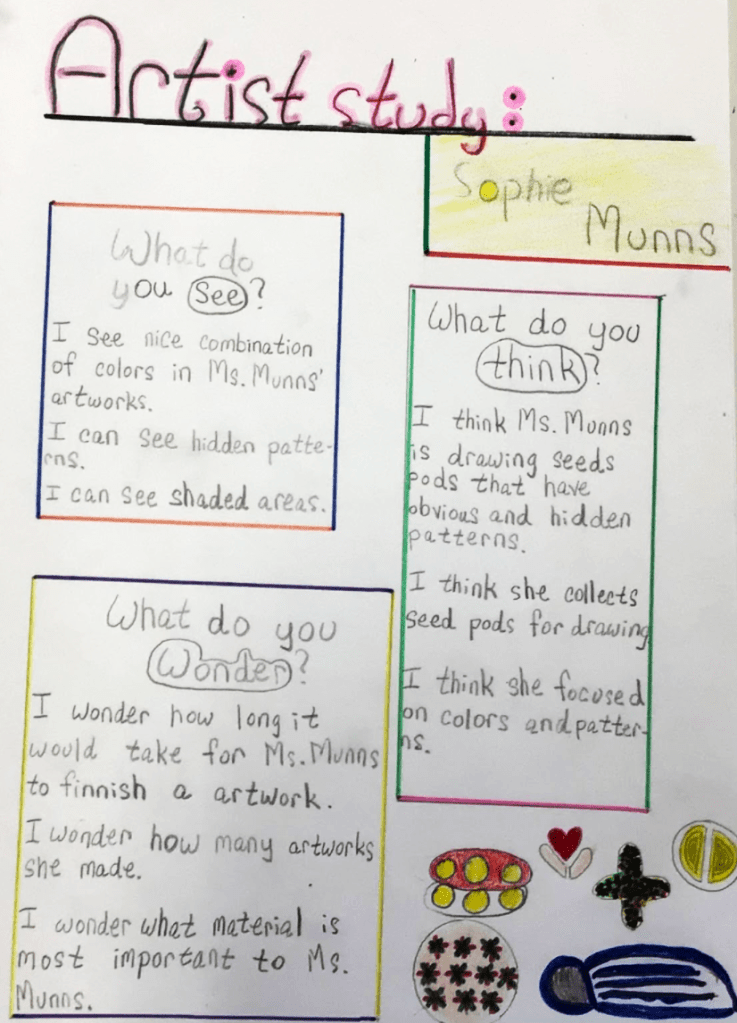 Artist study:
Sophie
Munns
What do
you See?
I see nice combination
of colors in Ms. Munns'
artworks.
I can see hidden patte-
rns.
I can see shaded areas.
What do you
think?
I think Ms. Munns
is drawing seeds
pods that have
obvious and hidden
patterns.
I think she collects
seed pods for drawing
I think she focused
on colors and patter-
ns.
What do you
Wonder?
I wonder how long it
would take for Ms. Munns
to finnish a artwork.
I wonder how many artworks
she made.
I wonder what material is
most important to Ms.
Munns.